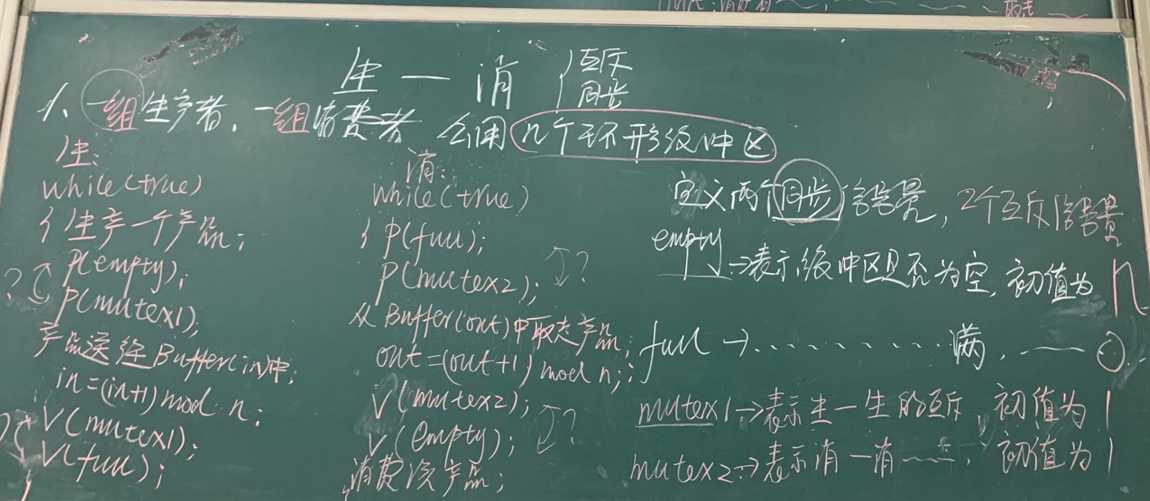 生—消 {互斥
同步
1、一组生产者、一组消费者 公用 n个环形缓冲区
生:
while(true)
{生产一个产品;
? P(empty);
P(mutex1);
产品送往Buffer(in)中;
in=(in+1) mod n;
? V(mutex1);
V(full);
消:
while(true)
{P(full);
P(mutex2); ?
从Buffer(out)中取走产品;
out=(out+1) mod n;
V(mutex2);
V(empty); ?
消费该产品;
定义两个同步信号量, 2个互斥信号量
empty→表示缓冲区是否为空, 初值为 n
full→........满, —— 0
mutex1→表示生—生的互斥, 初值为1
mutex2→表示消—消——, 初值为1